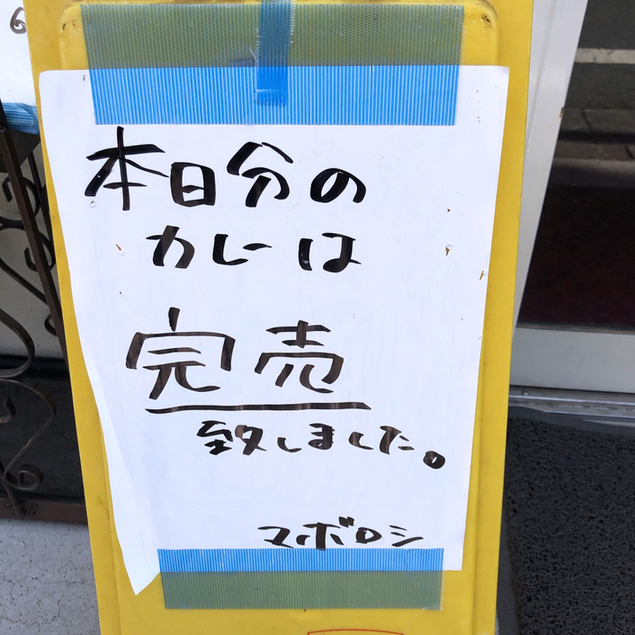 本日分の
カレーは
完売
致しました。
マボロシ